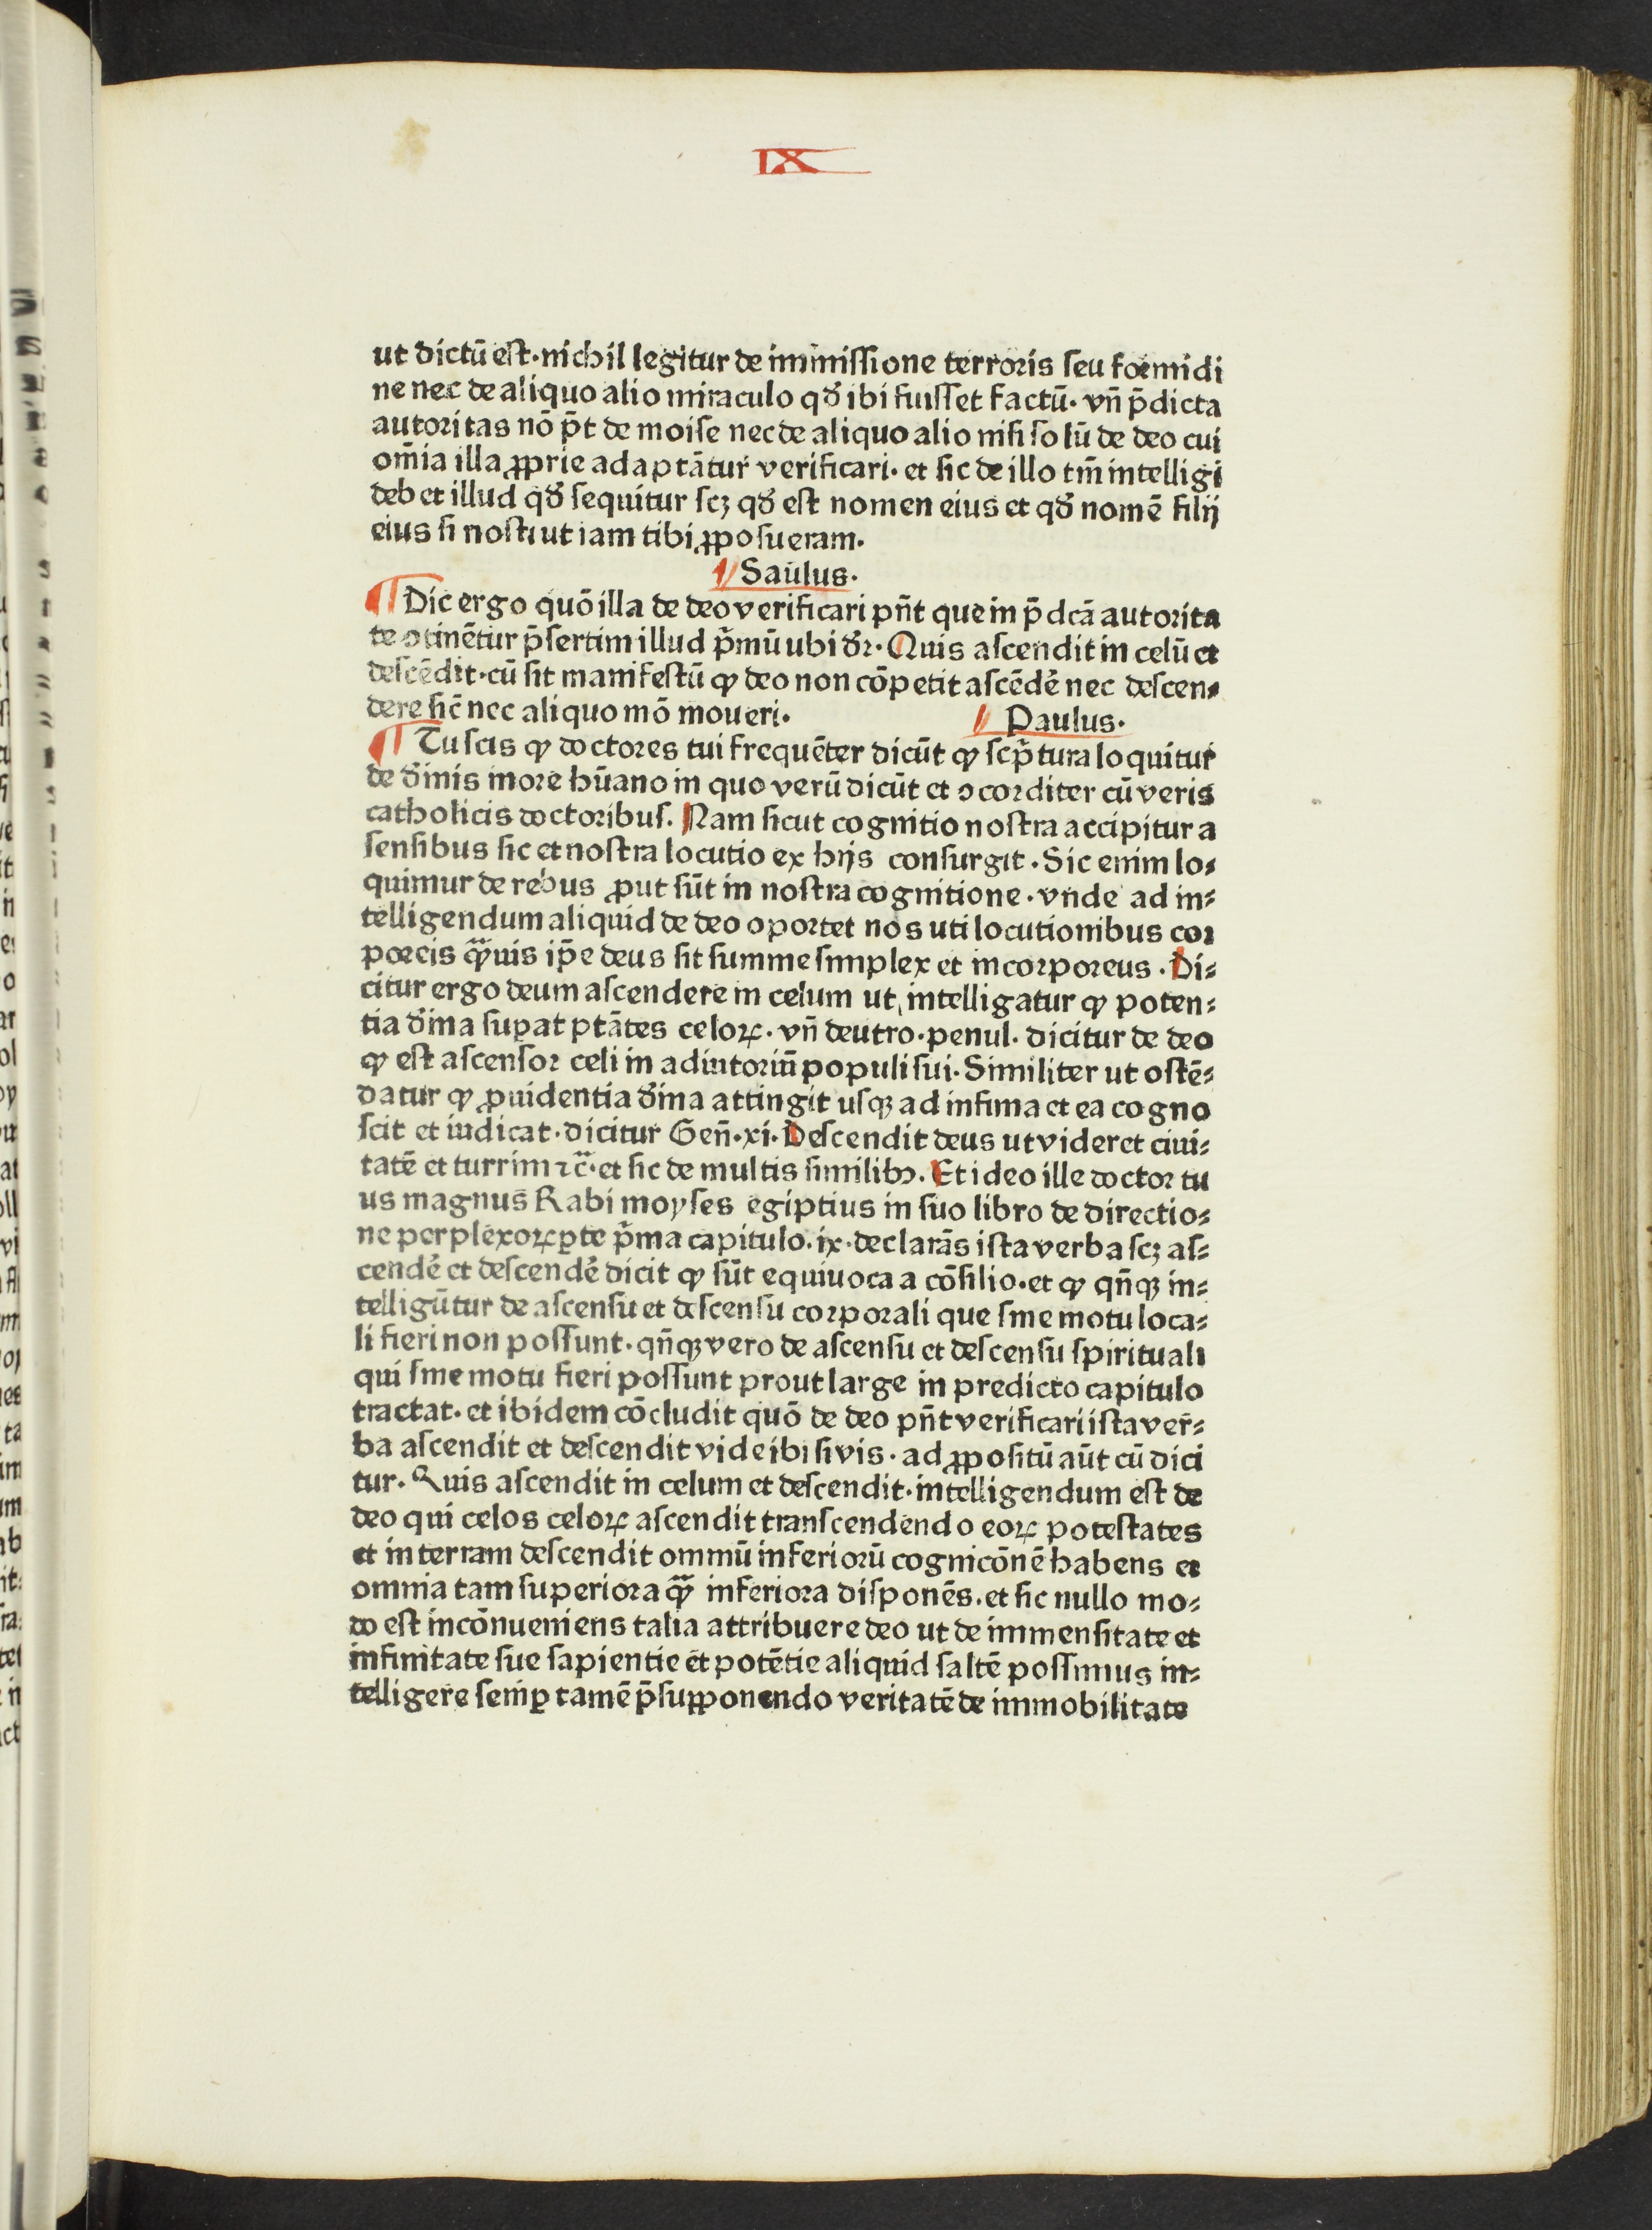 IX
ut dictū est·nichil legitur de immissione terroris seu formidi
ne nec de aliquo alio miraculo qđ ibi fuisset factū· vn̄ p̄dicta
autoritas nō p̄t de moise nec de aliquo alio nisi solū de deo cui
om̄ia illa ꝓprie adaptātur verificari· et sic de illo tm̄ intelligi
debet illud qđ sequitur scꝫ qđ est nomen eius et qđ nomē filij
eius si nosti ut iam tibi ꝓposueram·
Saulus·
Dic ergo quō illa de deo verificari pn̄t que in p̄dcā autorita
te ꝯtinētur p̄sertim illud p̄mū ubi dr̄· Quis ascendit in celū et
descēdit·cū sit manifestū ꝙ deo non cōpetit ascēdē nec descen⸗
dere sic̄ nec aliquo mō moueri·
Paulus·
Tu scis ꝙ doctores tui frequēter dicūt ꝙ scp̄tura loquitur
de diūnis more hūano in quo verū dicūt et ꝯcorditer cū veris
catholicis doctoribus. Nam sicut cognitio nostra accipitur a
sensibus sic et nostra locutio ex hijs consurgit·Sic enim lo⸗
quimur de rebus ꝓut sūt in nostra cognitione·vnde ad in⸗
telligendum aliquid de deo oportet nos uti locutionibus cor
poreis qͣꝫuis ip̄e deus sit summe simplex et incorporeus·Di⸗
citur ergo deum ascendere in celum ut intelligatur ꝙ poten⸗
tia diūna suꝑat ptātes celoꝝ·vn̄ deutro·penul· dicitur de deo
ꝙ est ascensor celi in adiutoriū populi sui·Similiter ut ostē⸗
datur ꝙ ꝓuidentia diūna attingit usqꝫ ad infima et ea cogno
scit et iudicat·dicitur Gen̄·xi·Descendit deus ut videret ciui⸗
tatē et turrim ⁊c̄·et sic de multis similibꝰ. Et ideo ille doctor tu
us magnus Rabi moyses egiptius in suo libro de directio⸗
ne perplexoꝝ ꝑte p̄ma capitulo·ix·declarās ista verba scꝫ as⸗
cendē et descendē dicit ꝙ sūt equiuoca a cōsilio·et ꝙ qn̄qꝫ in⸗
telligūtur de ascensu et descensu corporali que sine motu loca⸗
li fieri non possunt·qn̄qꝫ vero de ascensu et descensu spirituali
qui sine motu fieri possunt prout large in predicto capitulo
tractat·et ibidem cōcludit quō de deo pn̄t verificari ista ver⸗
ba ascendit et descendit vide ibi si vis·ad ꝓpositū aūt cū dici
tur·Quis ascendit in celum et descendit·intelligendum est de
deo qui celos celoꝝ ascendit transcendendo eoꝝ potestates
et in terram descendit omniū inferiorū cognicōnē habens et
omnia tam superiora qͣꝫ inferiora disponēs·et sic nullo mo⸗
do est incōnueniens talia attribuere deo ut de immensitate et
infinitate sue sapientie et potētie aliquid saltē possimus in⸗
telligere semꝑ tamē p̄suꝓponendo veritatē de immobilitate